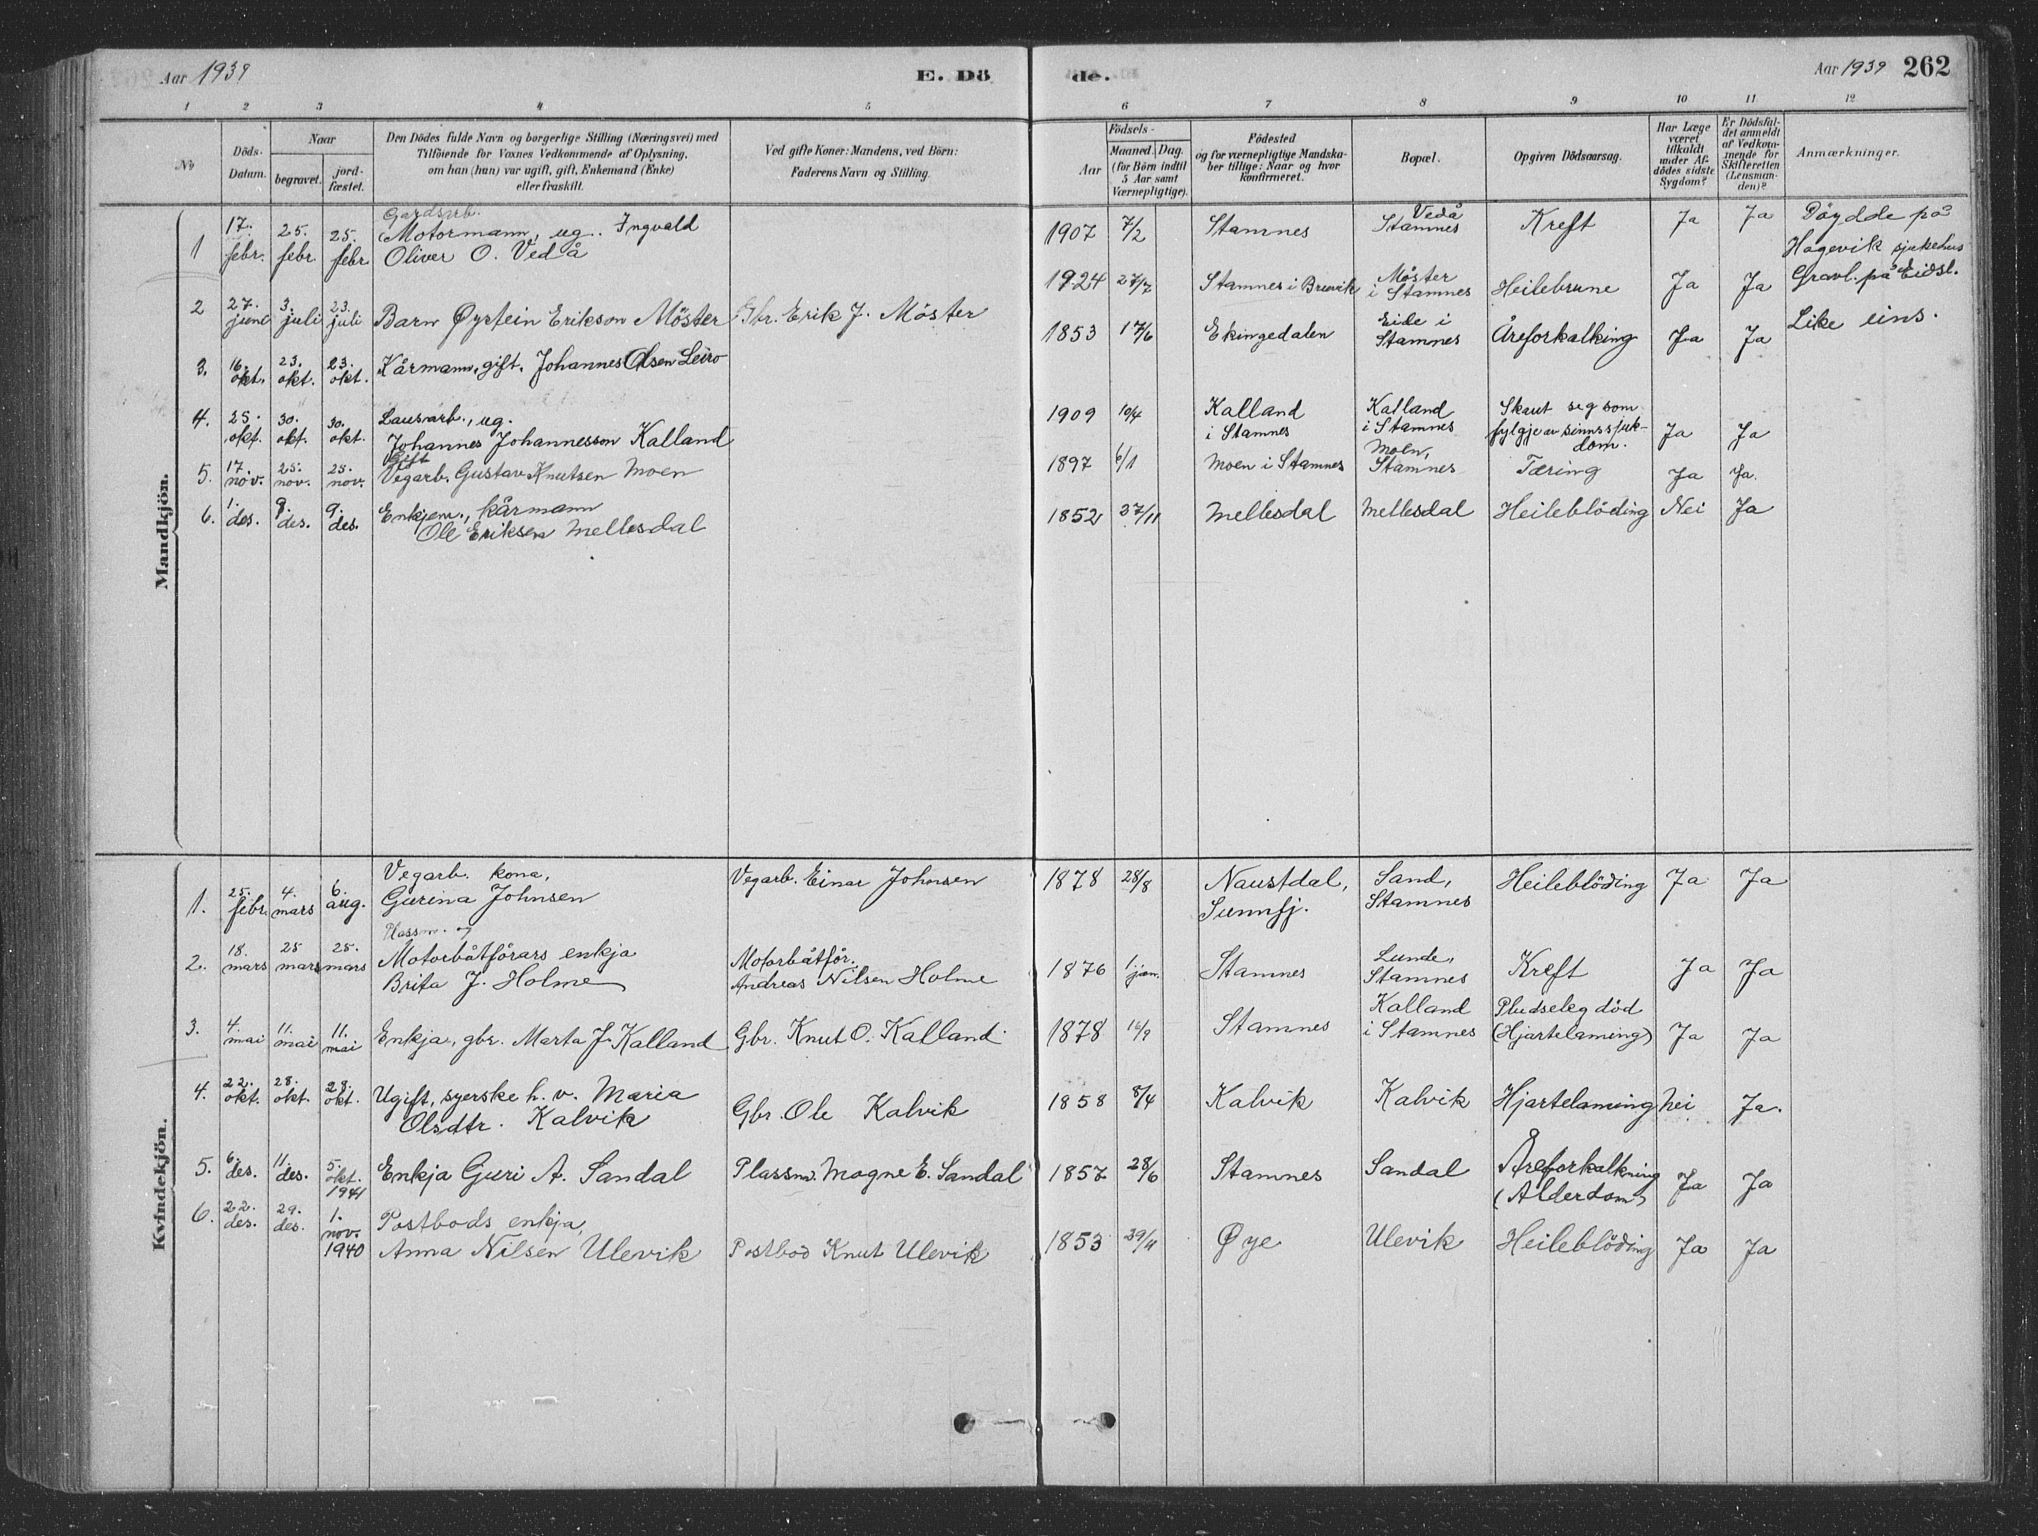 Aar 1939
E. Dö
de.
Aar 1939 262
1 2 3 4 5 6 7 8 9 10 11 12
No
Döds-Datum.
Naar
begravet.
jord-fæstet.
Den Dödes fulde Navn og borgerlige Stilling (Næringsvei) med
Tilföiende for Voxnes Vedkommende af Oplysning,
om han (hun) var ugift, gift, Enkemand (Enke)
eller fraskilt.
Ved gifte Koner: Mandens, ved Börn:
Faderens Navn og Stilling.
Födsels-
Aar
Maaned. Dag.
(for Börn indtil
5 Aar samt
Værnepligtige).
Födested
og for værnepligtige Mandska-
ber tillige: Naar og hvor
konfirmeret.
Bopæl.
Opgiven Dödsaarsag.
Har Læge
været
tilkaldt
under Af-
dödes sidste
Sygdom?
Er Dödsfal-
det anmeldt
af Vedkom-
mende for
Skifteretten
(Lensman-
den)?
Anmærkninger.
Mandkjön.
1 17. febr. 25. febr. 25. febr. Gardsarb. Motormann, ug. Ingvald
Oliver O. Vedå
1907 7/2 Stamnes Vedå Stamnes Kreft Ja Ja Döydde på
Hagevik sjukehus
Gravl. på Eidsl.
2 27. juni 3. juli 23. juli Barn Øystein Erikson Möster Gbr. Erik J. Möster
1924 27/7 Stamnes i Bruvik Möster i Stamnes Heilebrune Ja Ja
Like eins.
3. 16. okt. 23. okt. 23. okt. Kårmann, gift, Johannes Olsen Leiro
1853 17/6 Ekingedalen Eide i Stamnes Åreforkalking Ja Ja
4. 25. okt. 30. okt. 30. okt. Lausarb., ug.
Johannes Johannesson Kalland
1909 10/4 Kalland i Stamnes Kalland i Stamnes Skaut seg som
fylgje av sinnssjuk-
dom. Ja Ja
5. 17. nov. 25. nov. 25. nov. Gift
Vegarb. Gustav Knutsen Moen
1897 6/1 Moen i Stamnes Moen, Stamnes Tæring Ja Ja.
6. 1. des. 9. des. 9. des. Enkjem., kårmann
Ole Eriksen Mellesdal
1852 27/11 Mellesdal Mellesdal Heileblöding Nei Ja
Kvindekjön.
1. 25. febr. 4. mars 6. aug. Vegarb. kona,
Gurina Johnsen Vegarb. Einar Johnsen
1878 28/8 Naustdal,
Sunnfj. Sand,
Stamnes Heileblöding Ja Ja
2. 18. mars 25 mars 25. mars Plassm. og
Motorbåtförars enkja
Brita J. Holme Motorbåtför.
Andreas Nilsen Holme
1876 1. jan. Stamnes Lunde,
Stamnes Kreft Ja Ja
3. 4. mai 11. mai 11. mai Enkja, gbr. Marta J. Kalland Gbr. Knut O. Kalland.
1878 Stamnes Kalland
i Stamnes Pludseleg död
(Hjartelaming) Ja Ja
4. 22. okt. 28. okt. 28. okt. Ugift, syerske h. v. Maria
Olsdtr. Kalvik Gbr. Ole Kalvik
1858 8/4 Kalvik Kalvik Hjartelaming nei Ja.
5. 6. des. 11. des. 5. okt. 1941 Enkja Guri A. Sandal Plassm. Mogne E. Sandal
1857 28/6 Stamnes Sandal Åreforkalkning
(Alderdom) Ja Ja
6. 22. des. 29. des. 1. nov. 1940 Postbods enkja,
Anna Nilsen Ulevik Postbod Knut Ulevik
1853 29/11 Øye Ulevik Heileblöding Ja Ja